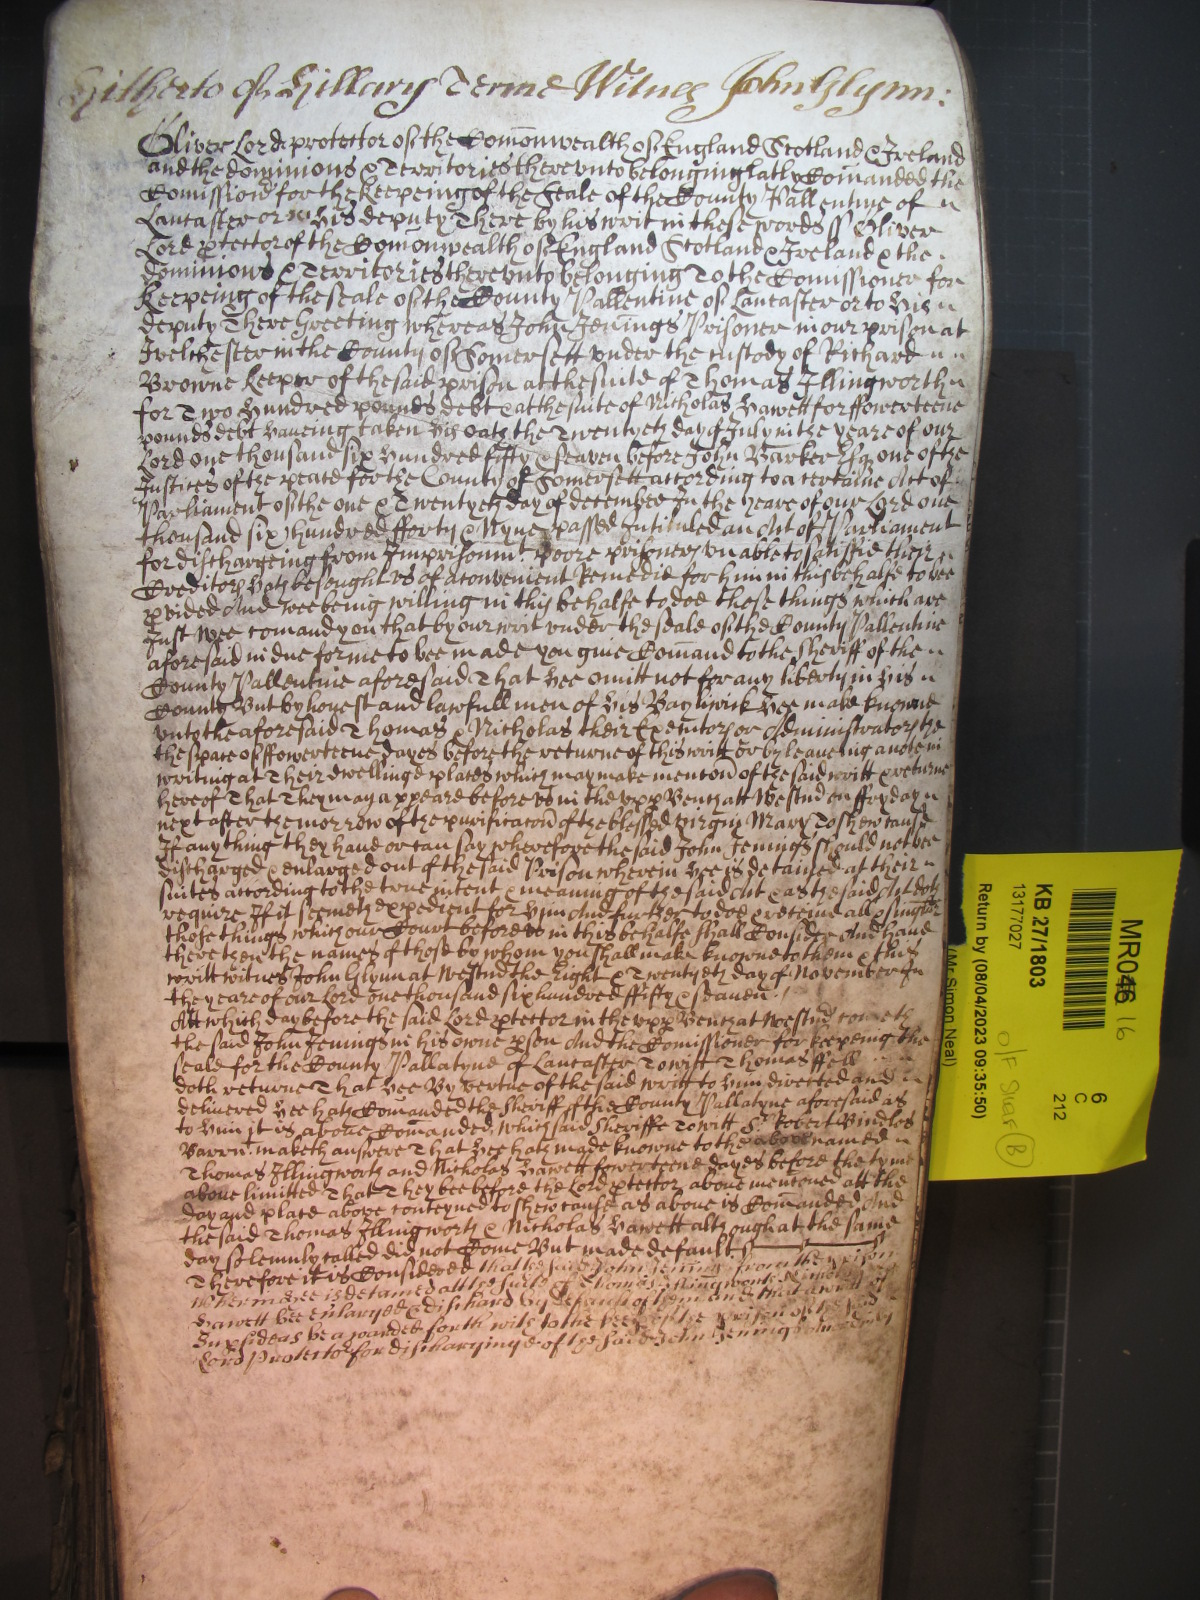 Hitherto of Hillary Terme Witnes John Glynn:
Oliver Lord protector of the Comonwealth of England Scotland & Ireland
and the dominions & Territories thereunto belonging latly Comanded the
Comissioner for the keepeing of the Seale of the County Pallentine of
Lancaster or his deputy There by his writ in these words ss Oliver
Lord ptector of the Comonwealth of England Scotland & Ireland & the
dominions & Territories thereunto belonging To the Comissioner for
keepeing of the seale of the County Pallentine of Lancaster or to his
deputy There Greeting whereas John Jenings Prisoner in our prison at
Ivelchester in the County of Somersett under the custody of Richard
Browne keeper of the said prison at the suite of Thomas Illingworth
for Two hundred pounds debt & at the suite of Nicholas Hawett for ffowerteene
pounds debt haveing taken his oath the Twentyeth day of July in the yeare of our
Lord one thousand six hundred fifty & seaven before John Barker Esq one of the
Justices of the peace for the County of Somersett according to a certaine Act of
Parliament of the one & Twentyeth day of december In the yeare of our Lord one
thousand six hundred fforty & Nyne passed Intituled an Act of Parliament
for dischargeing from Imprisonmt poore prisoners unable to satisfie their
Creditors hath besought us of a convenient Remedie for him in this behalfe to bee
pvided And wee being willing in this behalfe to doe those things which are
Just Wee comand you that by our writ under the seale of the County Pallentine
aforesaid in due forme to bee made you give Comand to the sheriff of the
County Pallentine aforesaid That hee omitt not for any liberty in his
County But by honest and lawfull men of his Bayliwick hee make knowne
unto the aforesaid Thomas & Nicholas their Executors or Administrators the
the space of ffowerteene dayes before the returne of this writt or by leaveing a note in
writing at Their dwelling places which may make mencon of the said writt & returne
hereof That They may appeare before us in the upp Bench att Westm on ffryday
next after the morrow of the purificacon of the blessed virgin Mary To shew cause
If any thing they have or can say wherefore the said John Jenings should not bee
discharged & enlarged out of the said Prison wherein hee is detained at their
suites according to the true intent & meaning of the said Act & as the said Act doth
require If it seemeth expedient for him And further to doe & receive all & singuler
those things which our Court before us in this behalfe shall Consider And have
there then the names of those by whom you shall make knowne to them & this
writt witnes John Glynn at Westm the Eight & Twentyeth day of November In
the yeare of our Lord one thousand six hundred ffifty & seaven
Att which day before the said Lord ptector in the upp Bench at Westm cometh
the said John Jenings in his owne pson And the Comissioner for keepeing the
seale for the County Pallatyne of Lancaster To witt Thomas ffell
doth returne That hee By vertue of the said writt to him directed and
delivered hee hath Comanded the Sheriff of the County Pallatyne aforesaid as
to him it is above Comanded which said Sheriffe To witt Sr Robert Bindlos
Barrtt maketh answere That hee hath made knowne to the above named
Thomas Illingworth and Nicholas Hawett fowerteene dayes before the tyme
above limitted That They bee before the Lord ptector above mencened att the
day and place above conteyned to shew cause as above is Comanded And
the said Thomas Illingworth & Nicholas Hawett although at the same
day solemnly called did not Come But made default
Therefore it is Considered that the said John Jennings from the prison
wherein hee is detained att the suite of Thomas Illingworth & Nicholas
Hawett bee enlarged & dischard by default of them And that a writt of
Supsideas be awarded forth with to the keeper of the prison of the said
Lord Protector for discharginge of the said John Jennings
MR046 16
KB 27/1803
13177027
Return by (08/04/2023 09:35:50)
(Mr Simon Neal)
6
C
212